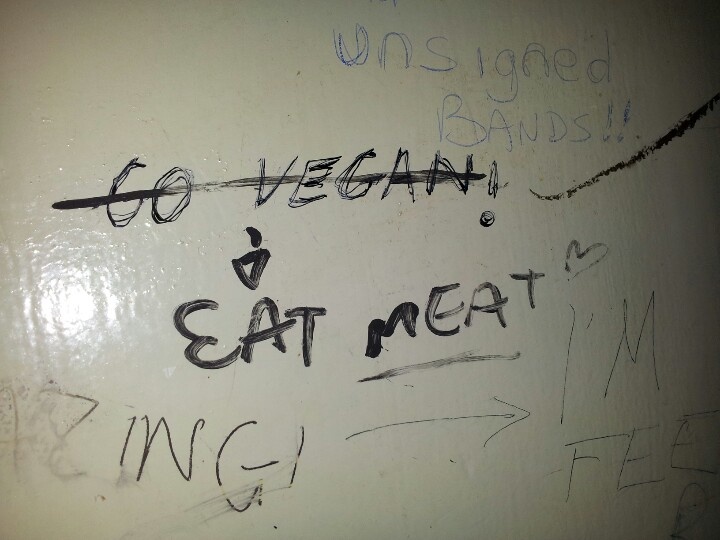 unsigned
BANDS!!
GO VEGAN!
EAT MEAT
I'M
FEE